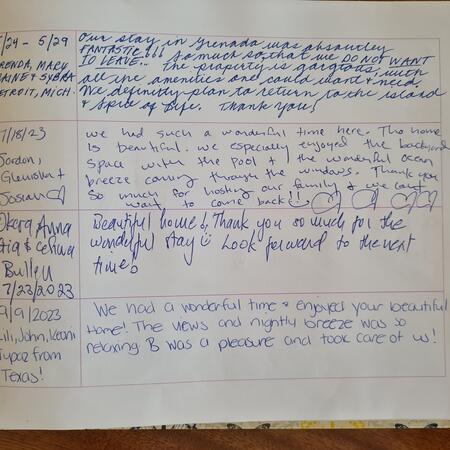 5/24 - 5/29
BRENDA, MARY,
ELAINE & SYBRA
DETROIT, MICH.
Our stay in Grenada was absoutley
FANTASTIC!!! So much so that we DO NOT WANT
TO LEAVE... The property is gorgous, with
all the amenities one could want & need.
We definitly plan to return to the island
& Spice of Life. Thank you!
7/18/23
Jordon,
+
Josiah
we had such a wonderful time here. The home
is beautiful. we especially enjoyed the backyard
space with the pool + the wonderful ocean
breeze coming through the windows. Thank you
so much for hosting our family & we can't
wait to come back!!
Anna
&
Bullen
7/23/2023
Beautiful home! Thank you so much for the
wonderful stay Look forward to the next
time.
9/9/2023
Lili, John, Keani
Tupaz from
Texas!
We had a wonderful time & enjoyed your beautiful
Home! The views and nightly breeze was so
relaxing B was a pleasure and took care of us!